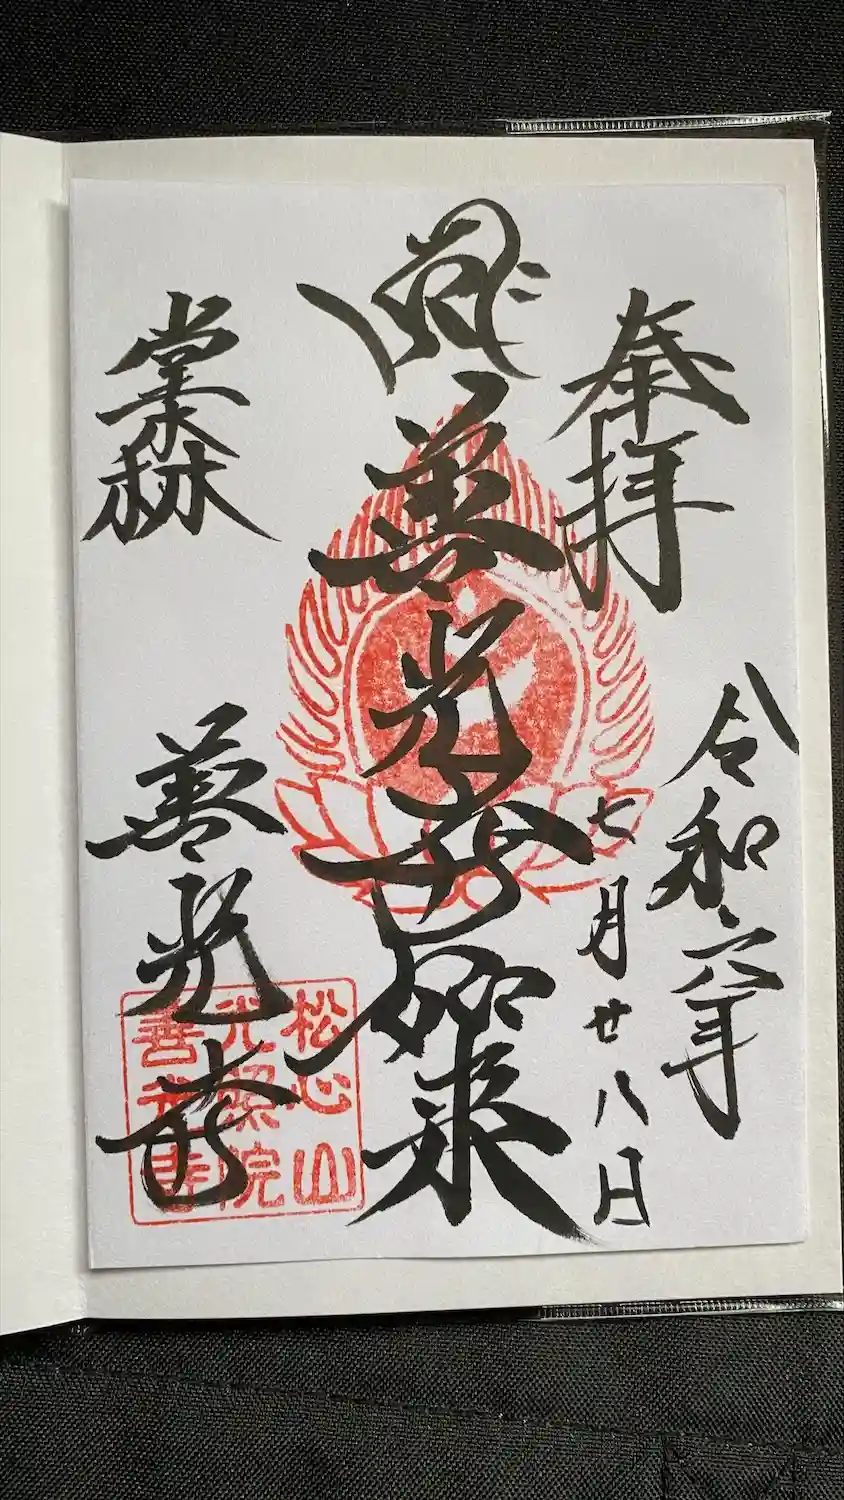 奉拝
令和六年
七月廿八日
善光寺如来
棠林
善光寺
松心山
光照院
善光寺